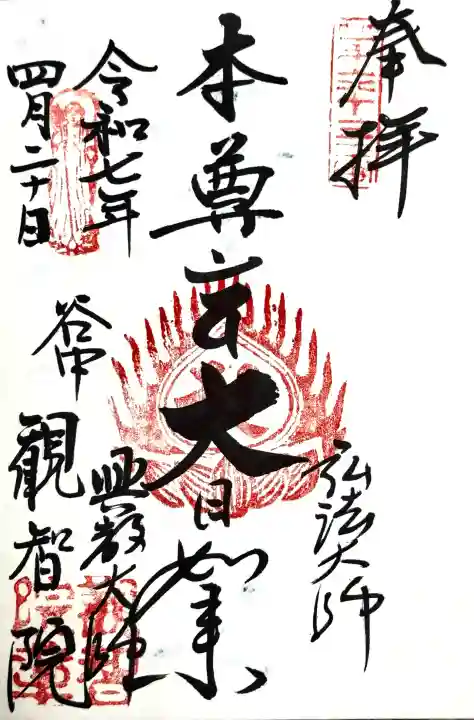 奉拝
弘法大師
本尊 大日如来
興教大師
令和七年
四月二十日
谷中
観智院